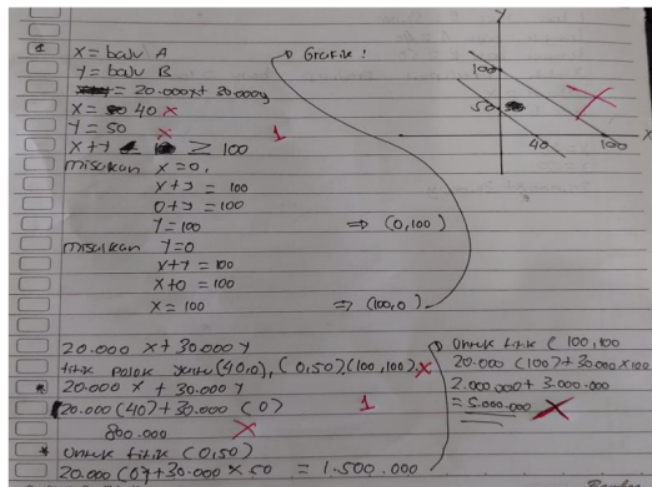 1 X = baju A
Y = baju B
= 20.000x + 30.000y
X = 40 x
Y = 50 x
1
X + Y ≥ 100
misalkan x = 0,
X + y = 100
0 + y = 100
Y = 100 ⇒ (0,100)
misalkan Y = 0
X + Y = 100
X + 0 = 100
X = 100 ⇒ (100,0)
Grafik :
Y
100
50
40 100 X
20.000 X + 30.000 Y
titik pojok yaitu (40,0), (0,50), (100,100) x
* 20.000 X + 30.000 Y
20.000 (40) + 30.000 (0)
1
800.000 x
* Untuk titik (0,50)
20.000 (0) + 30.000 x 50 = 1.500.000
Untuk titik (100,100
20.000 (100) + 30.000 x 100
2.000.000 + 3.000.000
= 5.000.000 x